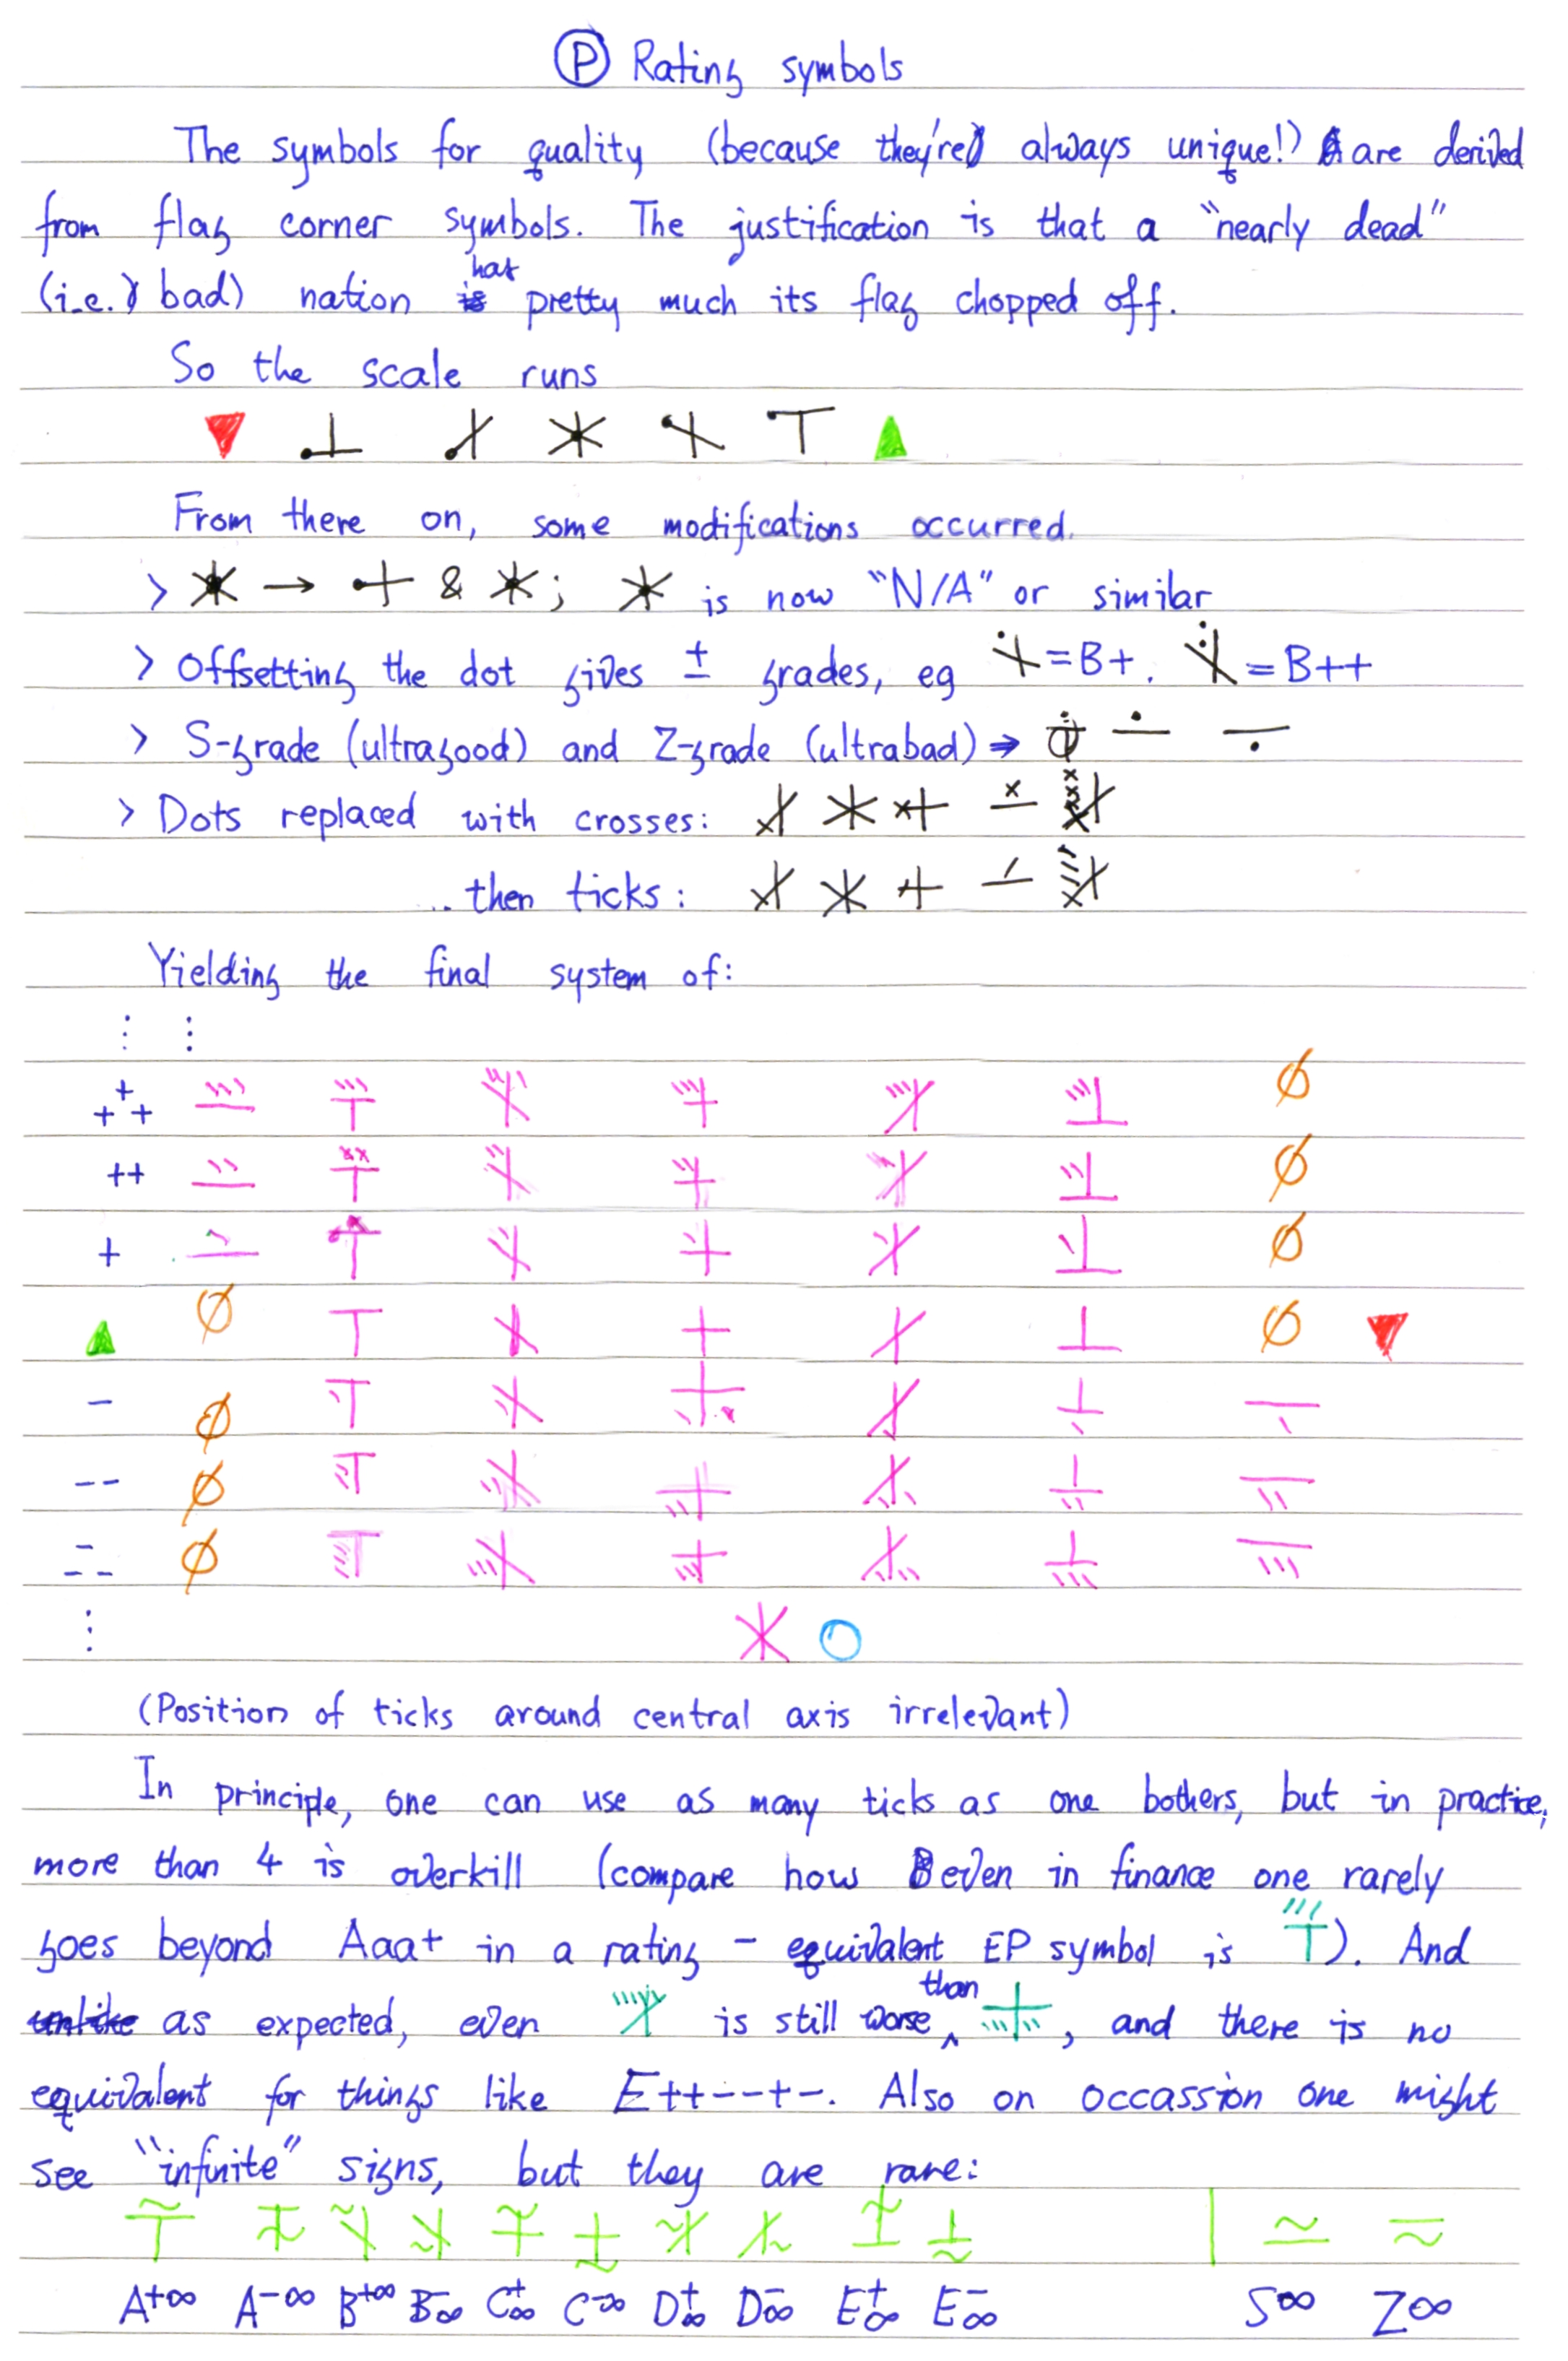 Ⓟ Rating symbols
The symbols for quality (because they're always unique!) are derived
from flag corner symbols. The justification is that a "nearly dead"
(i.e. bad) nation has pretty much its flag chopped off.
So the scale runs
From there on, some modifications occurred.
> → & ; is now "N/A" or similar
> Offsetting the dot gives ± grades, eg =B+. =B++
> S-grade (ultragood) and Z-grade (ultrabad) ⇒
> Dots replaced with crosses:
... then ticks:
Yielding the final system of:
⋮ ⋮
+++ ∅
++ ∅
+ ∅
∅ ∅
- ∅
-- ∅
--- ∅
⋮
(Position of ticks around central axis irrelevant)
In principle, one can use as many ticks as one bothers, but in practice,
more than 4 is overkill (compare how even in finance one rarely
goes beyond Aaa+ in a rating - equivalent EP symbol is ). And
as expected, even is still worse than , and there is no
equivalent for things like E++--+-. Also on occassion one might
see "infinite" signs, but they are rare:
A+∞ A-∞ B+∞ B-∞ C+∞ C-∞ D+∞ D-∞ E+∞ E-∞ S∞ Z∞